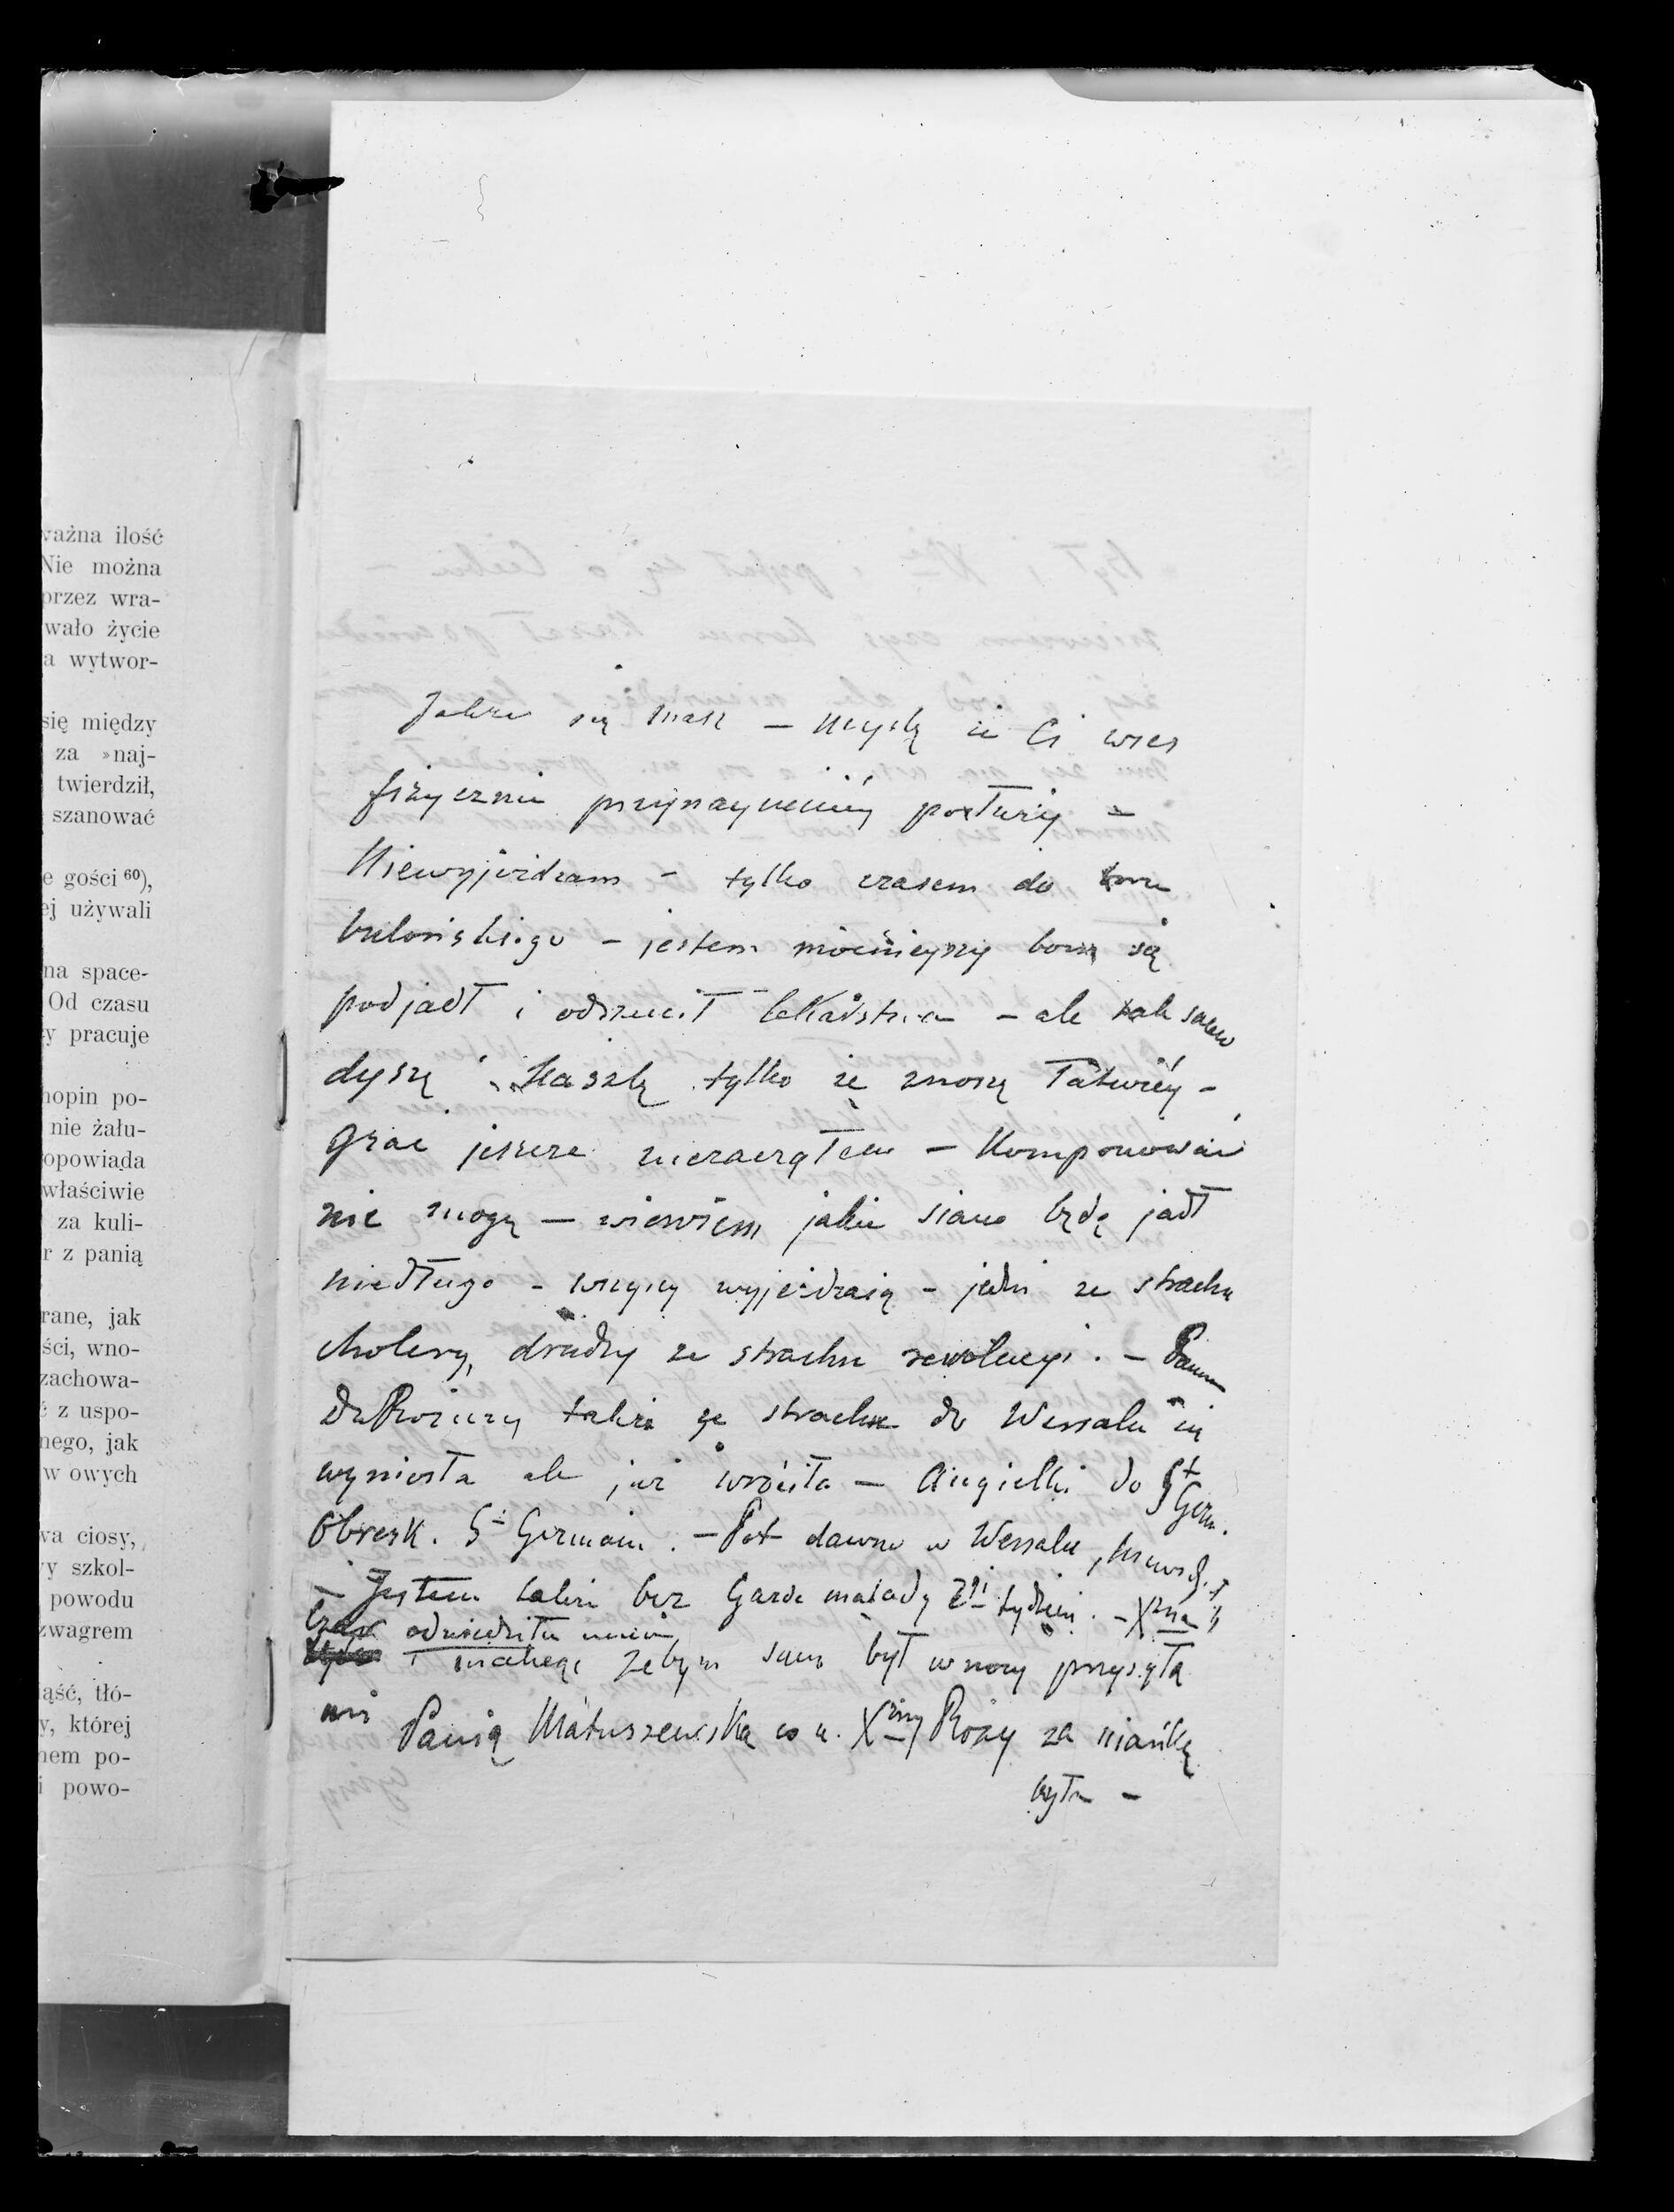 ważna ilość
Nie można
przez wra-
wało życie
a wytwor-
się między
za »naj-
twierdził,
szanować
e gości ⁶⁰),
ej używali
na space-
Od czasu
y pracuje
hopin po-
nie żału-
opowiada
właściwie
za kuli-
r z panią
rane, jak
ści, wno-
zachowa-
ć z uspo-
nego, jak
w owych
wa ciosy,
y szkol-
powodu
zwagrem
iąść, tłó-
y, której
nem po-
i powo-
Jakże się masz – myślę że Ci wieś
fizycznie przynaymniéy posłuży –
Niewyjeżdzam – tylko czasem do
bulońskiego – jestem mocnieyszy bom się
podjadł i odrzucił lekarstwa – ale tak samo
dyszę i kaszlę tylko że znoszę łatwiéy –
Grać jeszcze niezacząłem – Komponować
nie mogę – niewiem jakie siano będę jadł
niedługo – wszyscy wyjeżdzaią – jedni ze strachu
cholery, drudzy ze strachu rewolucyi. – Panna
de Rozieres także ze strachu do Wersalu się
wyniosła ale już wróciła – Angielki do St Germ.
Obresk. St Germain. – Pot. dawno w Wersalu,
– Jestem także bez Garde malady 2gi tydzień. – Xżna
Czar. odwiedziła mnie
i niechcąc żebym sam był w nocy przysyła
mi Panią Matuszewską co u Xżny Rozy za niańkę
była –